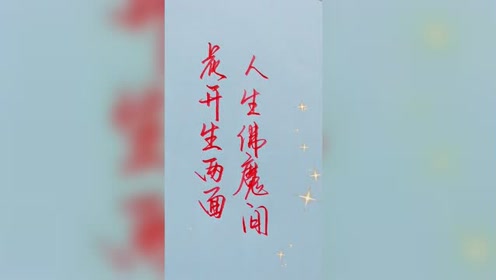 花开生两面
人生佛魔间